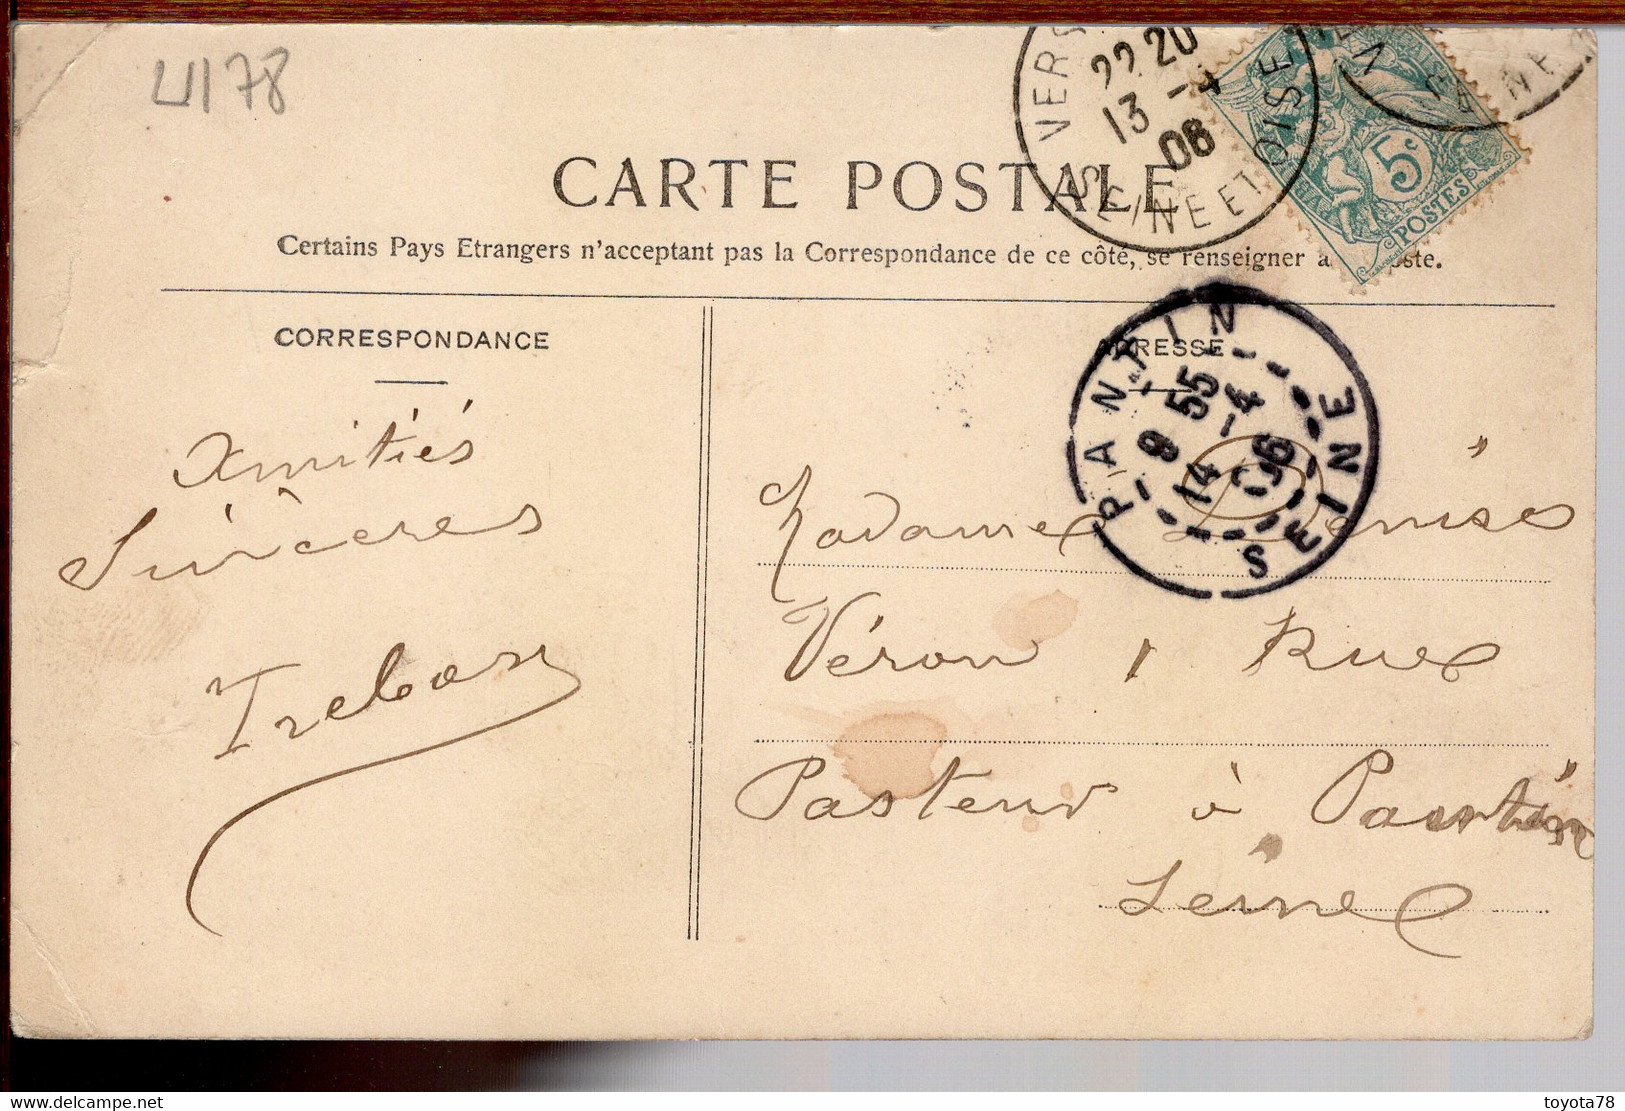 LI178
CARTE POSTALE
Certains Pays Etrangers n'acceptant pas la Correspondance de ce côté, se renseigner à
CORRESPONDANCE
Amitiés
Sincères
ADRESSE
Madame Denise
Véron 1 Rue
Pasteur à Pantin
Seine
VERS
SEINE ET OISE
22 20
13 -4
06
5c
POSTES
PANTIN
9 55
14 -4
06
SEINE
www.delcampe.net
toyota78